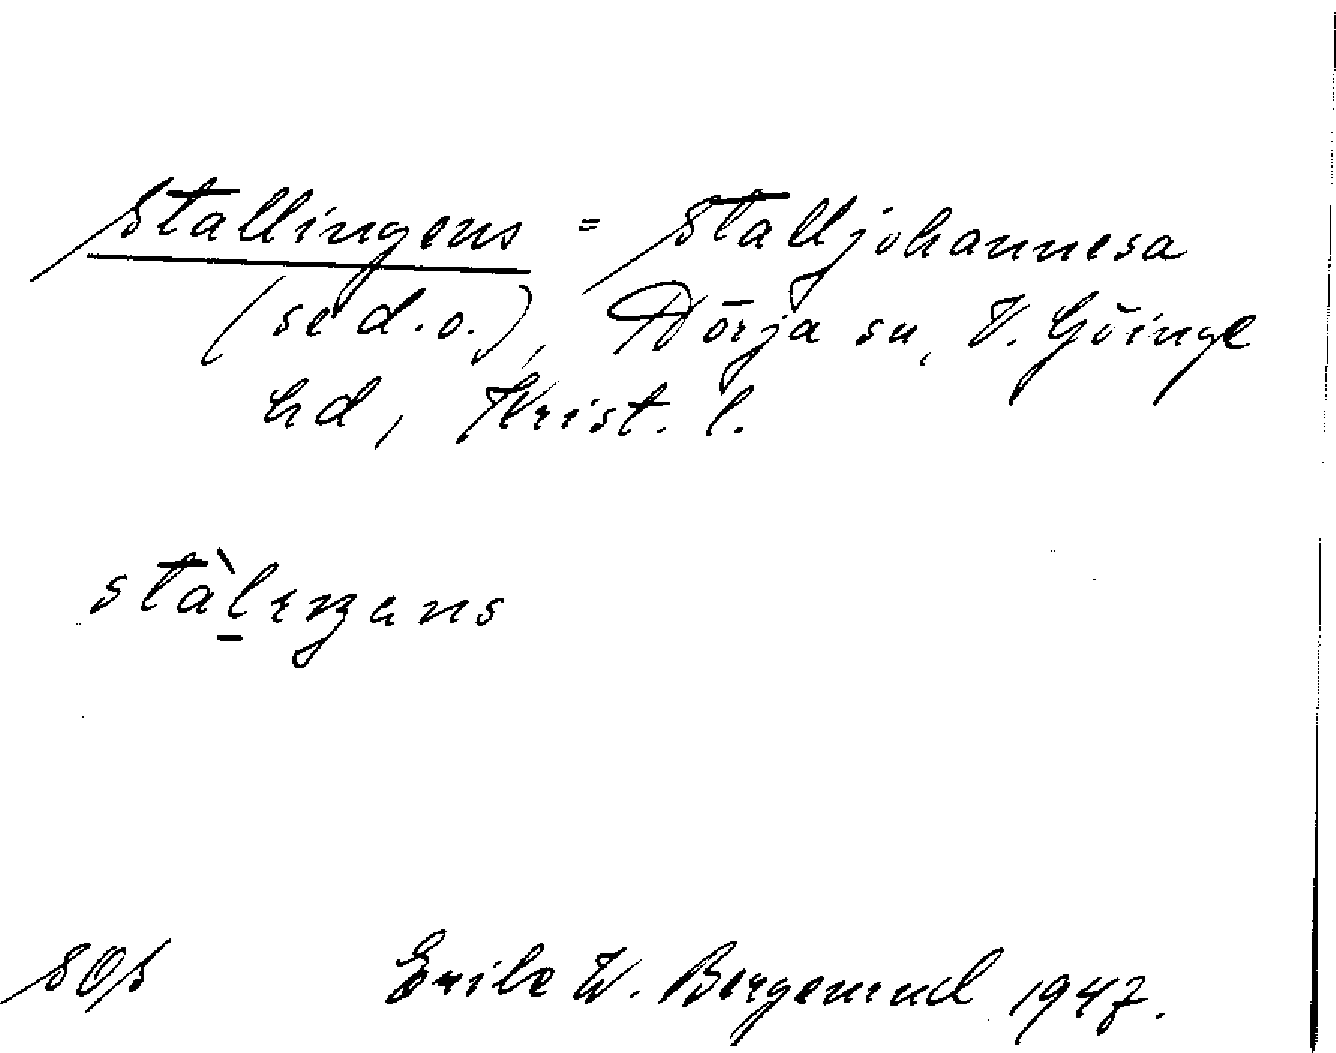 Stallingens = Stalljohannesa
(se d.o.), Nörja sn, V. Göinge
hd, Krist. l.
stàl̲ıŋans
SOS Erik W. Bergemud 1947.